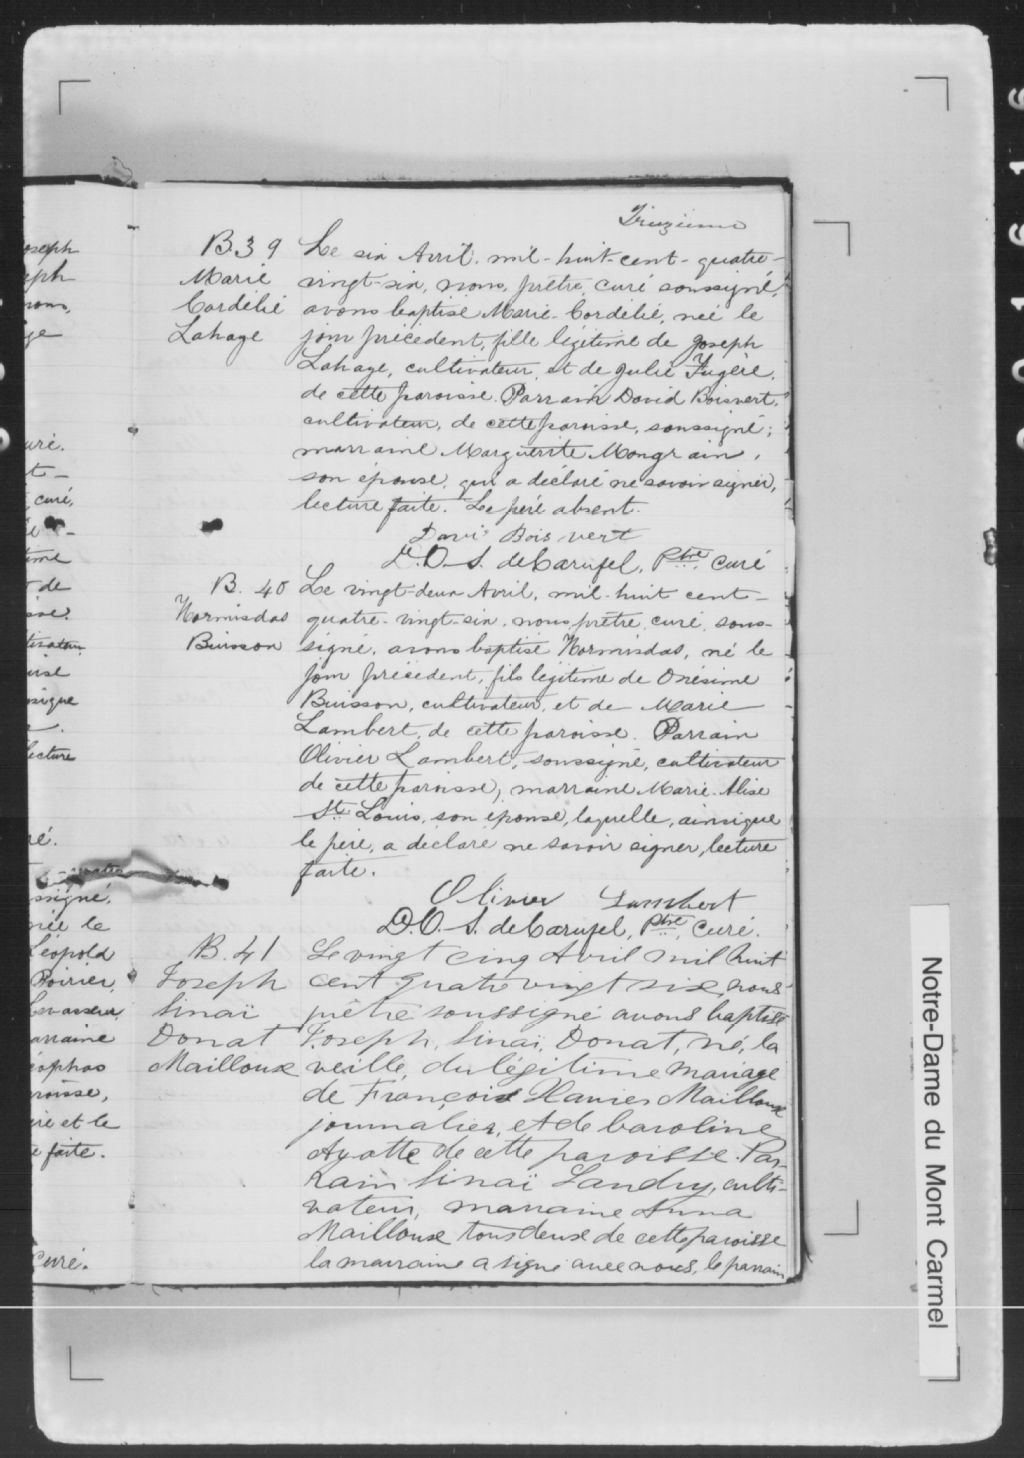 Treizième
B.39
Marie
Cordélie
Lahaye
Le six Avril, mil-huit-cent-quatre-
vingt-six, nous, prêtre, curé soussigné,
avons baptisé Marie-Cordélie, née le
jour précédent, fille légitime de Joseph
Lahaye, cultivateur, et de Julie Fugère,
de cette paroisse. Parrain David Boisvert,
cultivateur, de cette paroisse, soussigné;
marraine Marguerite Mongrain,
son épouse, qui a déclaré ne savoir signer,
lecture faite. Le père absent.
Davi Bois vert
D.O.S. de Carufel, Ptre curé
B. 40
Hormisdas
Buisson
Le vingt-deux Avril, mil-huit cent-
quatre-vingt-six, nous, prêtre, curé, sous-
signé, avons baptisé Hormisdas, né le
jour précédent, fils légitime de Onésime
Buisson, cultivateur, et de Marie
Lambert, de cette paroisse. Parrain
Olivier Lambert, soussigné, cultivateur
de cette paroisse, marraine Marie-Alise
St. Louis, son épouse, laquelle, ainsi que
le père, a déclaré ne savoir signer, lecture
faite.
Olivier Lambert
D.O.S. de Carufel, Ptre, Curé.
B. 41
Joseph
Sinaï
Donat
Mailloux
Le vingt cinq Avril mil huit
cent quatre vingt six, nous
prêtre soussigné avons baptisé
Joseph, Sinaï, Donat, né, la
veille, du légitime mariage
de François Xavier Mailloux
journalier, et de Caroline
Ayotte de cette paroisse. Par-
rain Sinaï Landry, culti-
vateur, marraine Anna
Mailloux tous deux de cette paroisse
la marraine a signé avec nous, le parrain
oseph
eph
ge
uré.
t-
curé,
de
ecture
é.
ssigné,
née le
Léopold
Poirier,
arraine
éophas
roisse,
ère et le
e faite.
Curé.
Notre-Dame du Mont Carmel